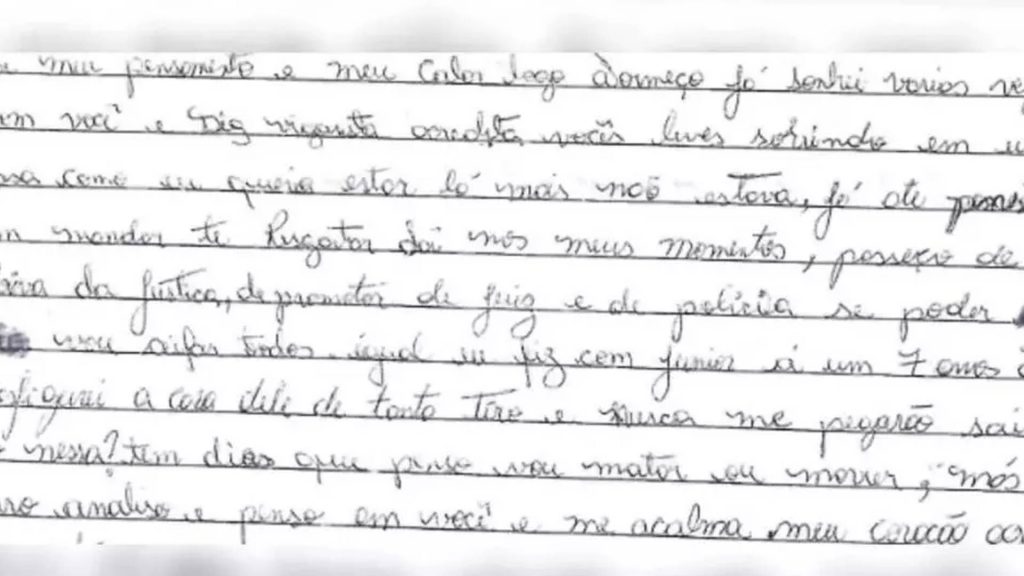 meu pensamento e meu Calor logo Adormeço já sonhei varias ve
voci e acredita vocês lives sorrindo em u
como eu queria estar lá mais não estava, já ate pens
mandar te Resgatar dai nos meus momentos, posseço de
da justiça, de promotor de juiz e de policia se poder
vou sifar todos igual eu fiz com junior a um 7 anos
figurei a cara dele de tanto Tiro e Nunca me pegarão sai
nessa? tem dias que penso vou matar ou morrer, más
analiso e penso em você e me acalma meu coração